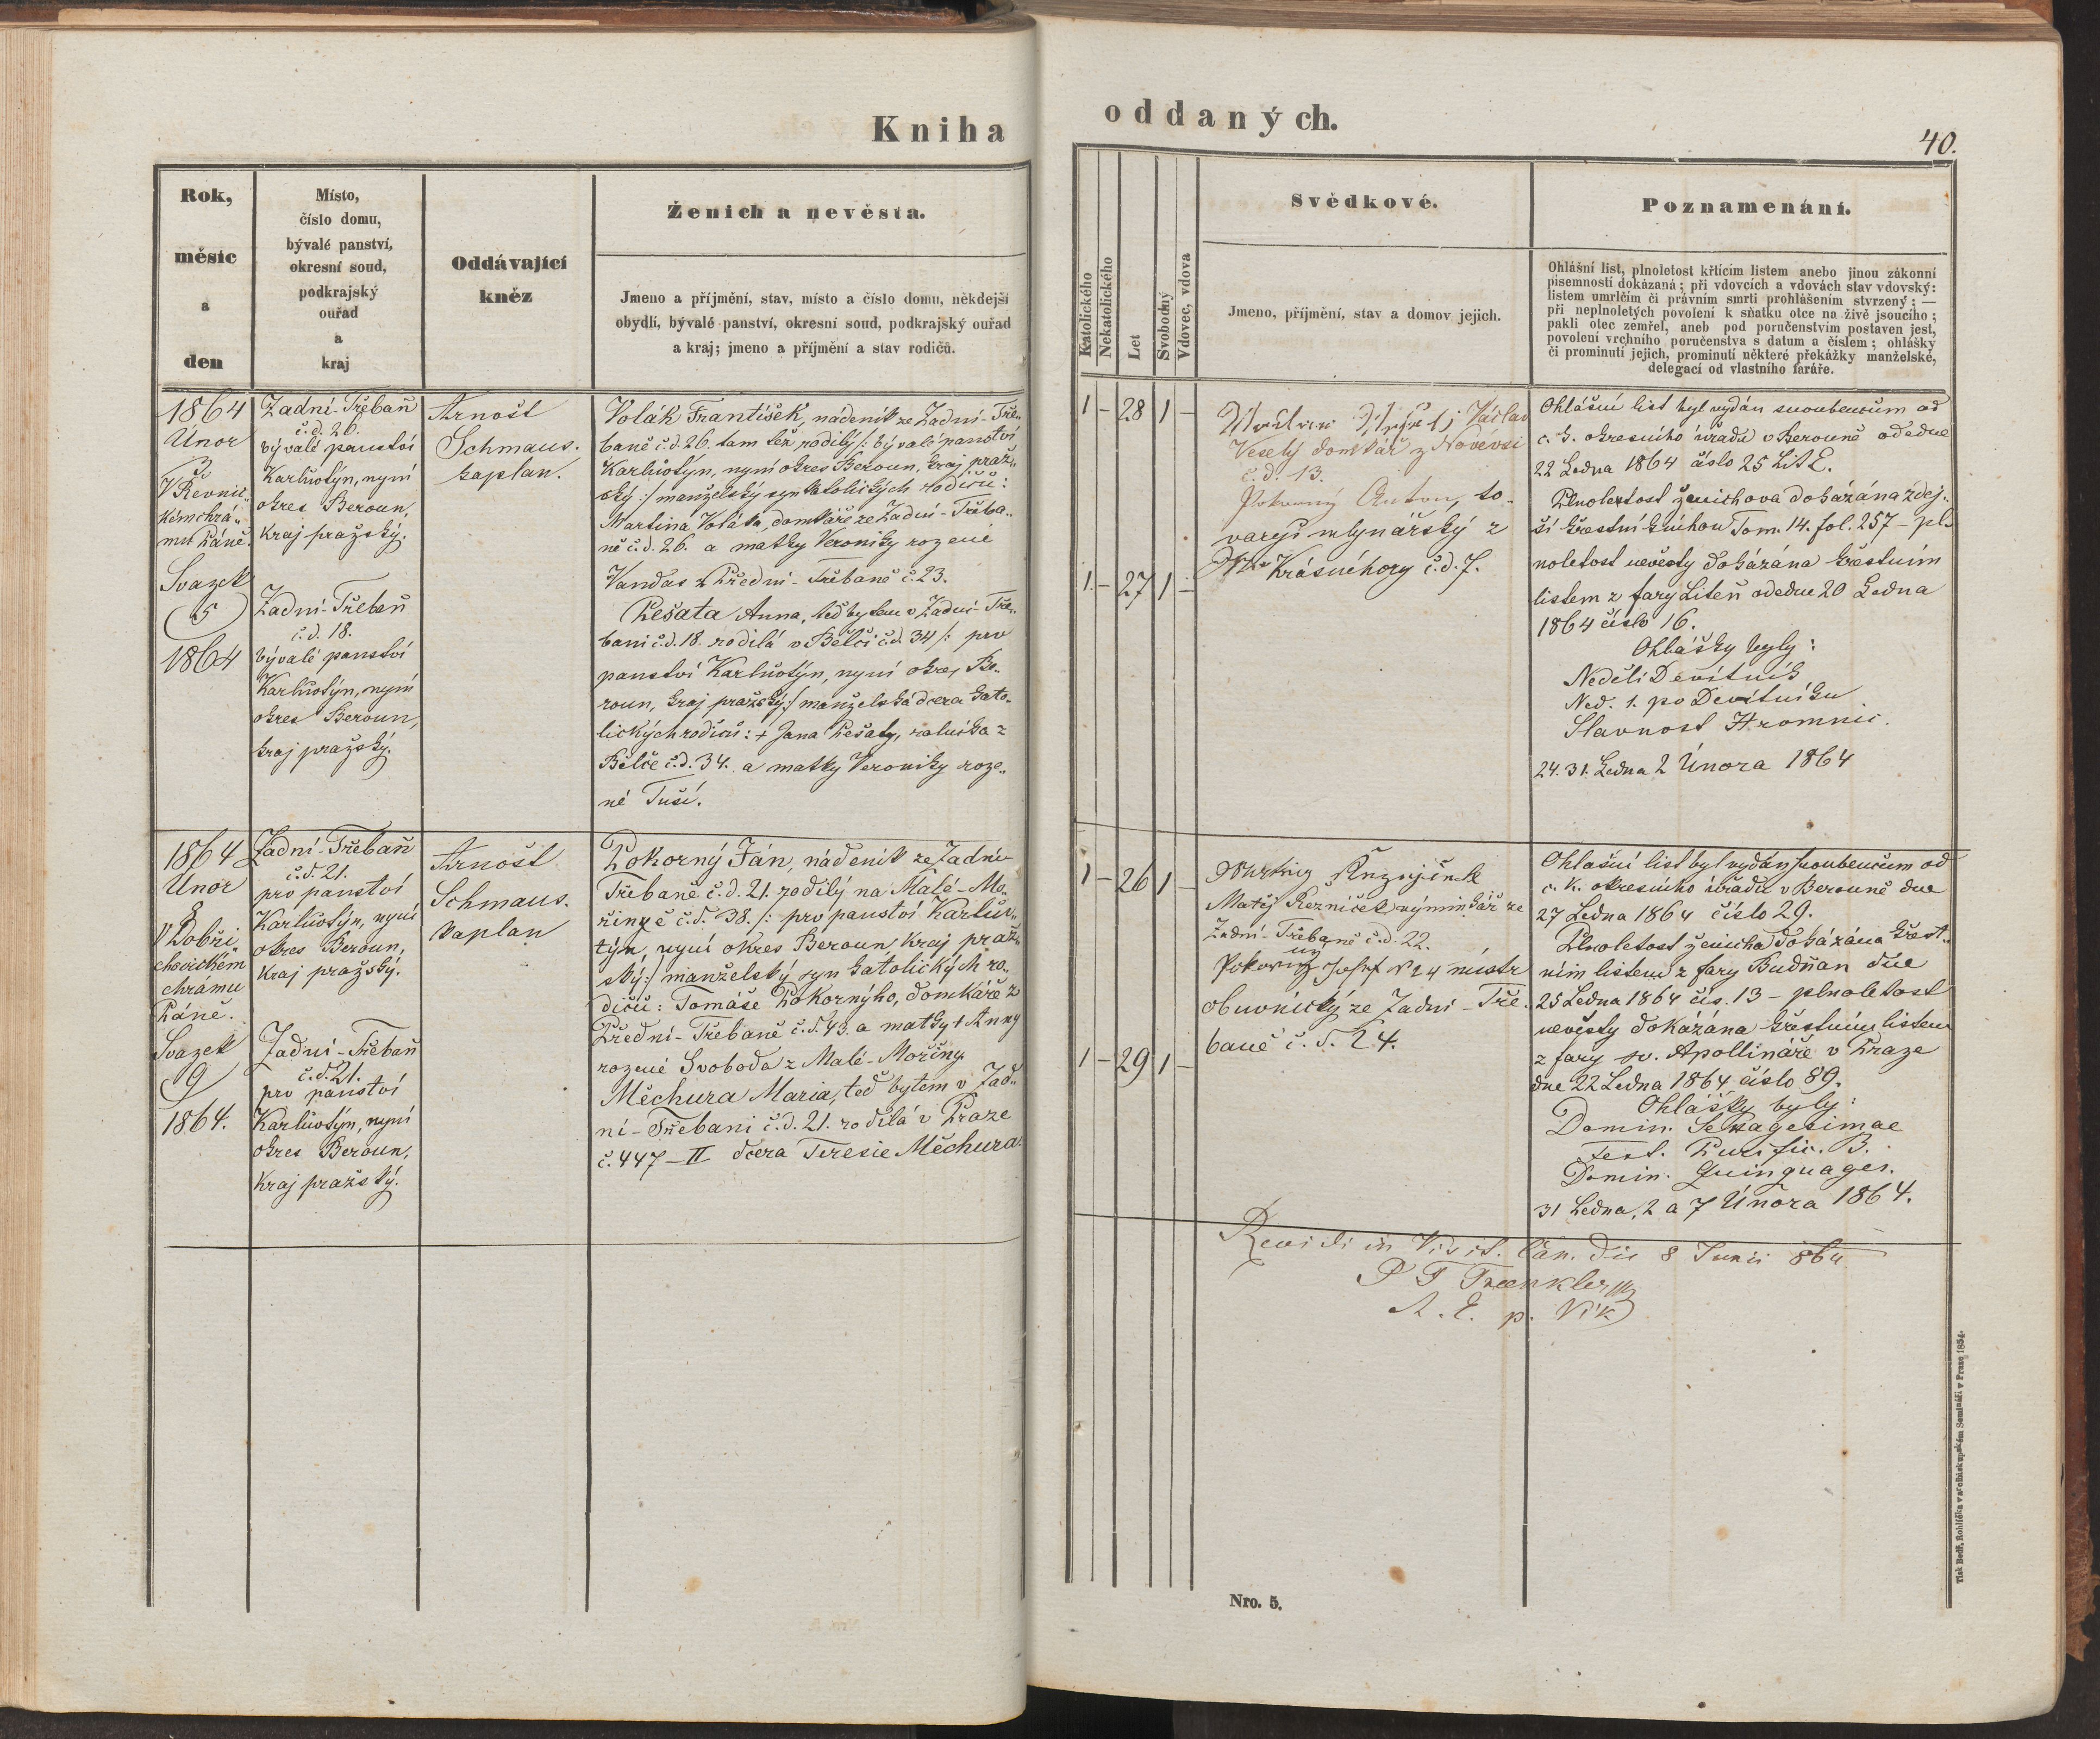 Kniha
oddaných.
40.
Rok,
měsíc
a
den
Místo,
číslo domu,
bývalé panství,
okresní soud,
podkrajský
ouřad
a
kraj
Oddávající
kněz
Ženich a nevěsta.
Jmeno a příjmění, stav, místo a číslo domu, někdejší
obydlí, bývalé panství, okresní soud, podkrajský ouřad
a kraj; jmeno a příjmění a stav rodičů.
Katolického
Nekatolického
Let
Svobodný
Vdovec, vdova
Svědkové.
Jmeno, příjmění, stav a domov jejich.
Poznamenání.
Ohlášní list, plnoletost křtícím listem anebo jinou zákonní
písemností dokázaná; při vdovcích a vdovách stav vdovský:
listem umrlčím či právním smrti prohlášením stvrzený; —
při neplnoletých povolení k sňatku otce na živě jsoucího;
pakli otec zemřel, aneb pod poručenstvím postaven jest,
povolení vrchního poručenstva s datum a číslem; ohlášky
či prominutí jejich, prominutí některé překážky manželské,
delegací od vlastního faráře.
1864
Únor
3
V Řevnic„
kém chrá„
mu Páně.
Svazek
5
1864
Zadní-Třebaň
č.d. 26.
bývalé panství
Karlův Týn, nyní
okres Beroun,
kraj pražský.
Zadní-Třebaň
č.d. 18.
bývalé panství
Karlův Týn, nyní
okres Beroun,
kraj pražský.
Arnošt
Schmaus.
kaplan.
Volák František, nádeník ze Zadní-Tře„
baně č.d. 26. tam též rodilý /: bývalé panství
Karlův Týn, nyní okres Beroun, kraj praž„
ský :/ manželský syn katolických rodičů:
Martina Voláka, domkáře ze Zadní-Třeba„
ně č.d. 26. a matky Veroniky rozené
Vandas z Přední-Třebaně č. 23.
Pešata Anna, teď bytem v Zadní-Tře„
bani č.d. 18. rodilá v Bělči č.d. 34 /: prv
panství Karlův Týn, nyní okres Be„
roun, kraj pražský :/ manželská dcera kato„
lických rodičů: + Jana Pešaty, rolníka z
Bělče č.d. 34. a matky Veroniky roze„
né Tuší.
1 - 28 1 -
1 - 27 1 -
Václav
Veselý domkář z Novévsi
č.d. 13.
Pokorný Anton, to„
varyš mlynářský z
Krásnéhory č.d. 7.
Ohlášní list byl vydán snoubencům od
c. k. okresního úřadu v Berouně odedne
22 Ledna 1864 číslo 25 Lit E.
Plnoletost ženichova dokázána zdej„
ší křestní knihou Tom. 14. fol. 257 - pl„
noletost nevěsty dokázána křestním
listem z fary Liteň odedne 20 Ledna
1864 číslo 16.
Ohlášky byly:
Neděli Devítník
Ned. 1. po Devítníku
Slavnost Hromnic.
24. 31. Ledna 2 Února 1864
1864
Únor
8
V Dobři„
chovickém
chrámu
Páně.
Svazek
9
1864.
Zadní-Třebaň
č.d. 21.
prv panství
Karlův Týn, nyní
okres Beroun,
kraj pražský.
Zadní-Třebaň
č.d. 21.
prv panství
Karlův Týn, nyní
okres Beroun,
kraj pražský.
Arnošt
Schmaus.
kaplan
Pokorný Ján, nádeník ze Zadní-
Třebaně č.d. 21. rodilý na Malé-Mo„
řinyě č.d. 38. /: prv panství Karlův
týn, nyní okres Beroun kraj praž„
ský :/ manželský syn katolických ro„
dičů: Tomáše Pokornýho, domkáře z
Přední-Třebaně č.d. 43. a matky + Anny
rozené Svoboda z Malé-Mořiny.
Měchura Maria, teď bytem v Zad„
ní-Třebani č.d. 21. rodilá v Praze
č. 447 - II dcera Teresie Měchura.
1 - 26 1 -
1 - 29 1 -
Matěj Řezníček výminkář ze
Zadní-Třebaně č.d. 22.
Pokorný Josef N 24 mistr
obuvnický ze Zadní-Tře„
baně č.d. 24.
Ohlašní list byl vydán snoubencům od
c. k. okresního úřadu v Berouně dne
27 Ledna 1864 číslo 29.
Plnoletost ženicha dokázána křest„
ním listem z fary Budňan dne
25 Ledna 1864 čís. 13 - plnoletost
nevěsty dokázána křestním listem
z fary sv. Apollináře v Praze
dne 22 Ledna 1864 číslo 89.
Ohlášky byly:
Domin. Sexagesimae
Fest. Purific. B.
Domin. Quinquages.
31 Ledna, 2 a 7 Února 1864.
Revidi in Visit. Can. die 8 Junii 864
Nro. 5.
Tisk Bedř. Rohlíčka v arcibiskupském Semináři v Praze 1854.